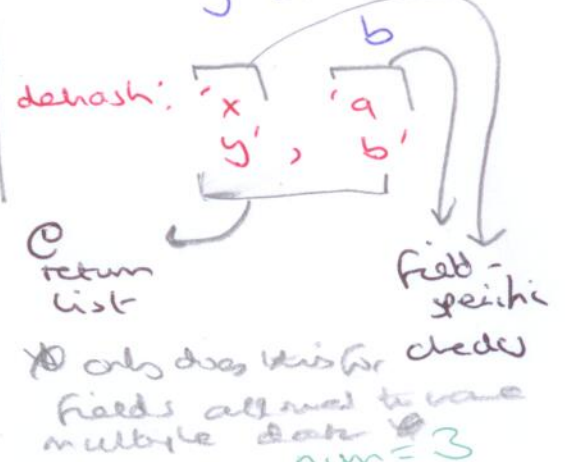 y
b
dehash: 'x 'a
y' , b'
return
list
field-
specific
checks
only does this for
fields allowed to have
multiple data
num=3